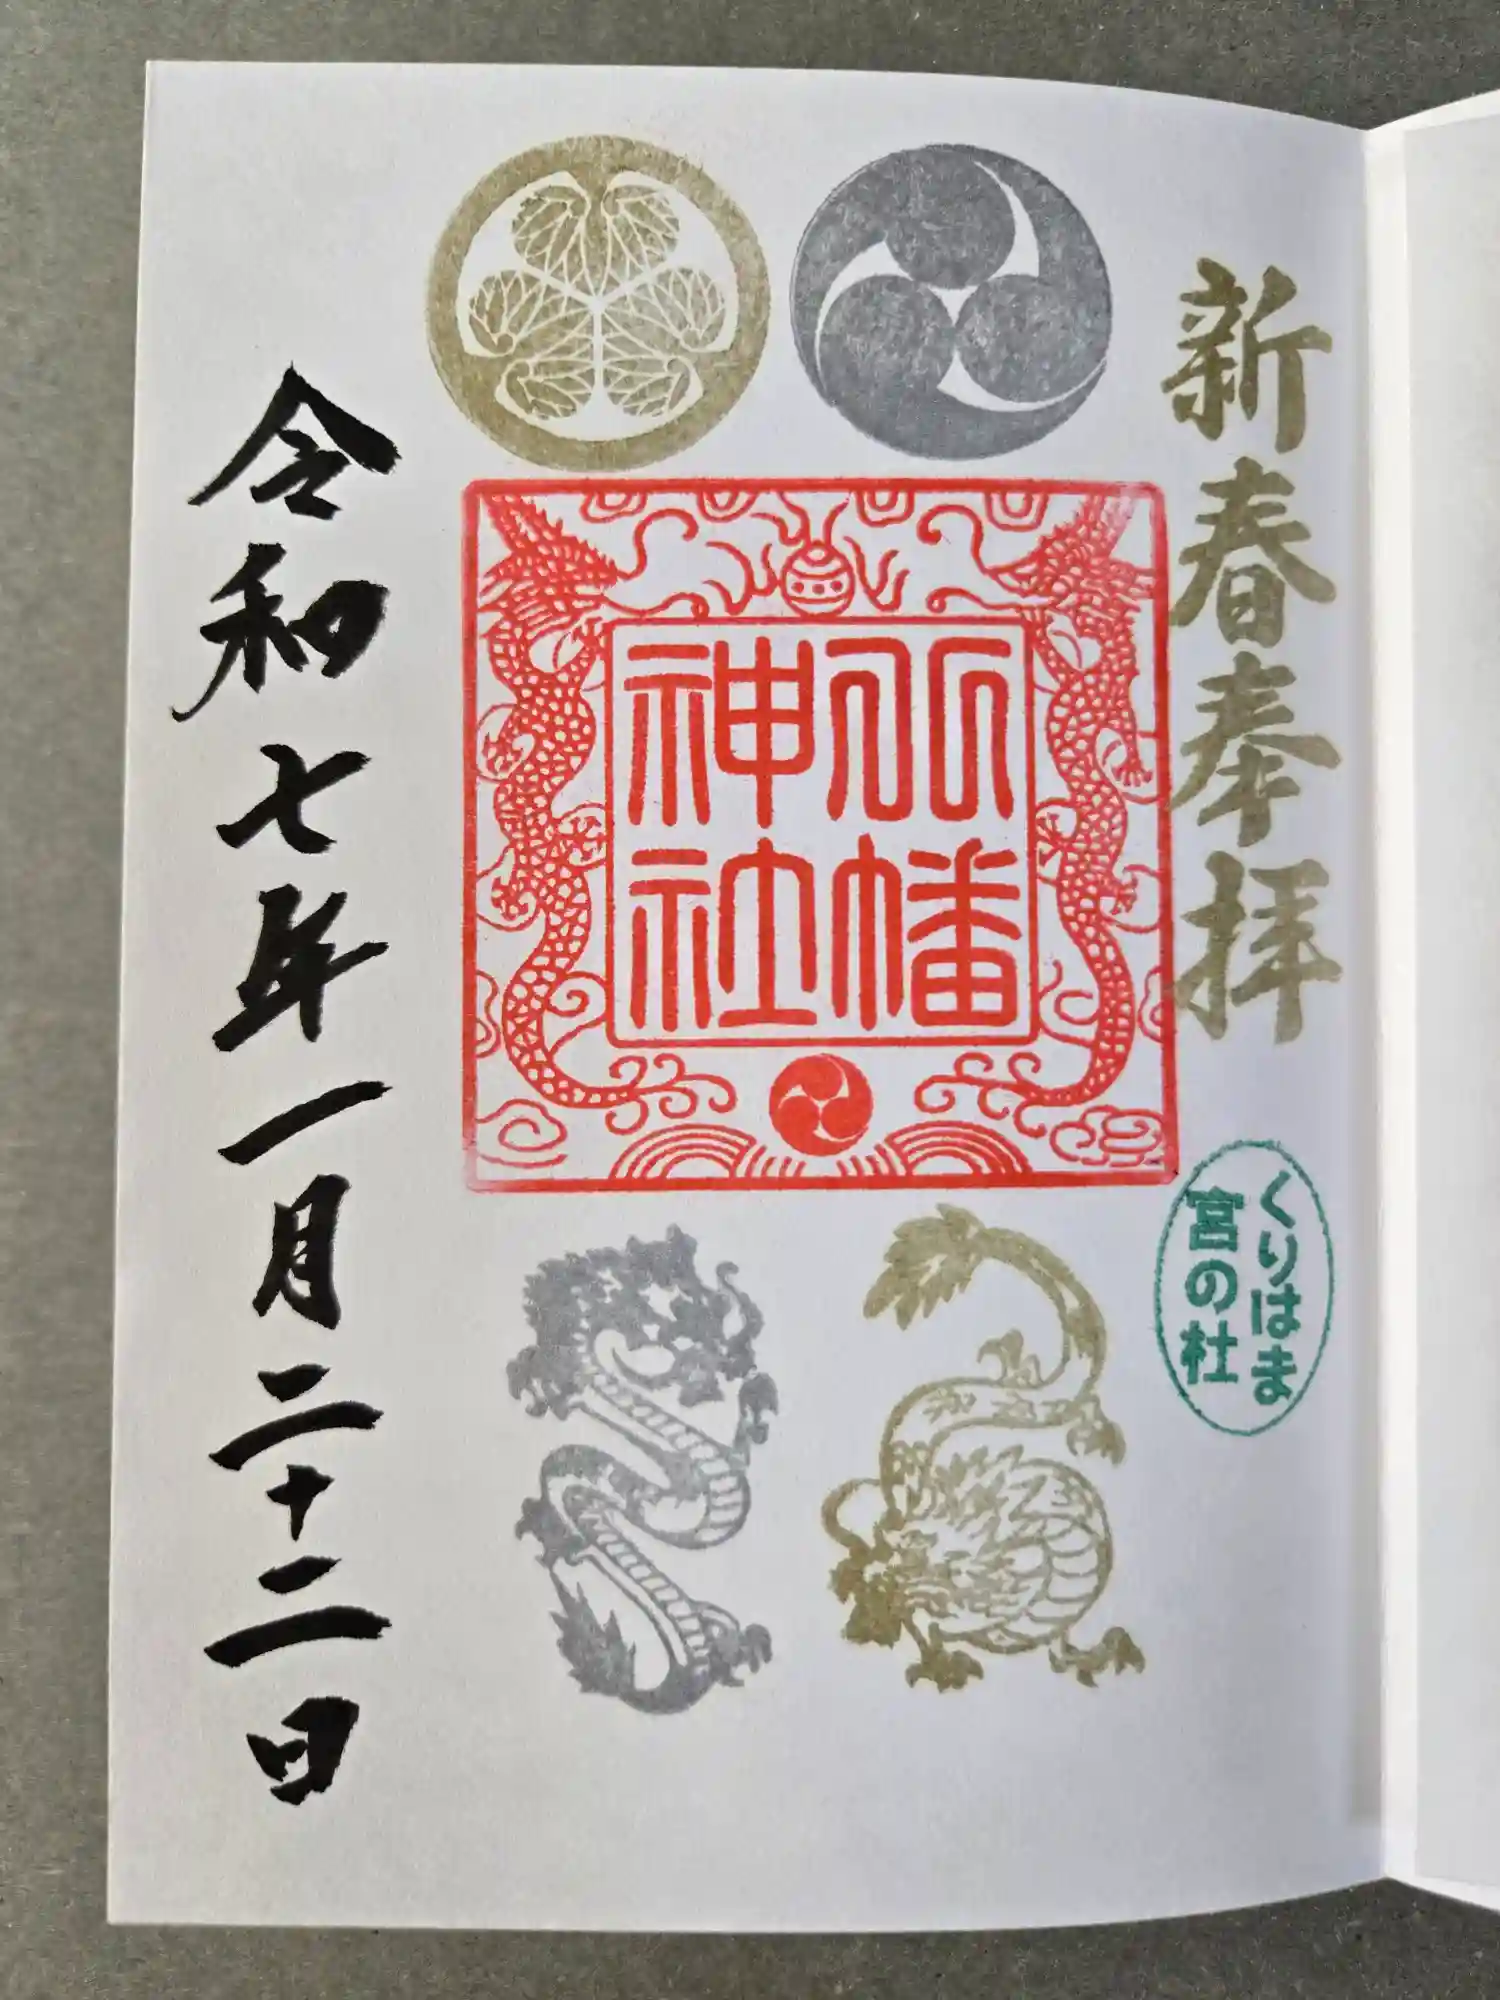 新春奉拝
くりはま
宮の杜
八幡
神社
令和七年一月二十二日